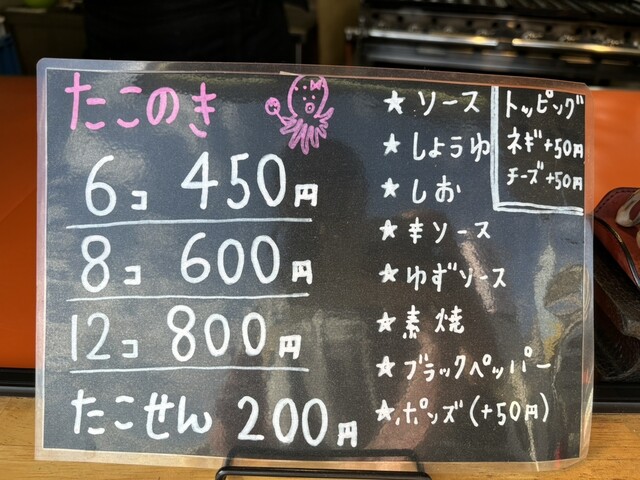 たこのき
6コ 450円
8コ 600円
12コ 800円
たこせん 200円
★ソース
★しょうゆ
★しお
★辛ソース
★ゆずソース
★素焼
★ブラックペッパー
★ポンズ(+50円)
トッピング
ネギ+50円
チーズ+50円